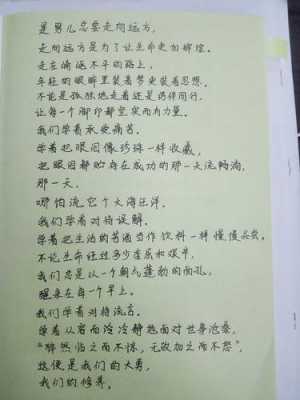 是男儿总要走向远方，
走向远方是为了让生命更加辉煌。
走在崎岖不平的路上，
年轻的眼眸里装着梦更装着思想。
不论是孤独地走着还是结伴同行，
让每一个脚印都坚实而有力量。
我们学着承受痛苦。
学着把眼泪像珍珠一样收藏，
把眼泪都贮存在成功的那一天流畅淌，
那一天，
哪怕流它个大海汪洋。
我们学着对待误解。
学着把生活的苦酒当作饮料一样慢慢品尝，
不论生命经过多少委屈和艰辛，
我们总是以一个朝气蓬勃的面孔，
醒来在每一个早上。
我们学着对待流言。
学着从容而冷静地面对世事沧桑，
“猝然临之而不惊，无故加之而不怒”，
这便是我们的大勇，
我们的修养。